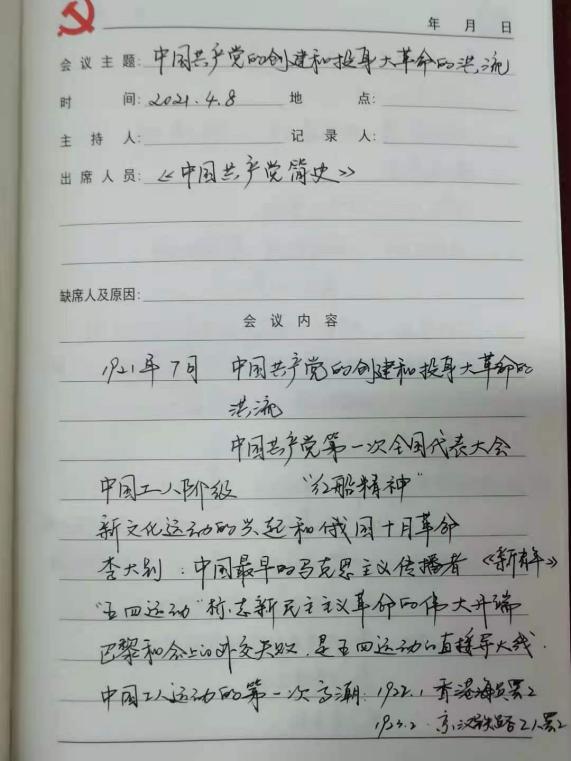 年 月 日
会议主题: 中国共产党的创建和投身大革命的洪流
时 间: 2021.4.8 地 点:
主 持 人: 记 录 人:
出席人员: 《中国共产党简史》
缺席人及原因:
会 议 内 容
1921年7月 中国共产党的创建和投身大革命的
洪流
中国共产党第一次全国代表大会
中国工人阶级 “红船精神”
新文化运动的兴起和俄国十月革命
李大钊: 中国最早的马克思主义传播者 《新青年》
“五四运动”标志新民主主义革命的伟大开端
巴黎和会上的外交失败, 是五四运动的直接导火线.
中国工人运动的第一次高潮: 1922.1 香港海员罢工
1923.2. 京汉铁路工人罢工